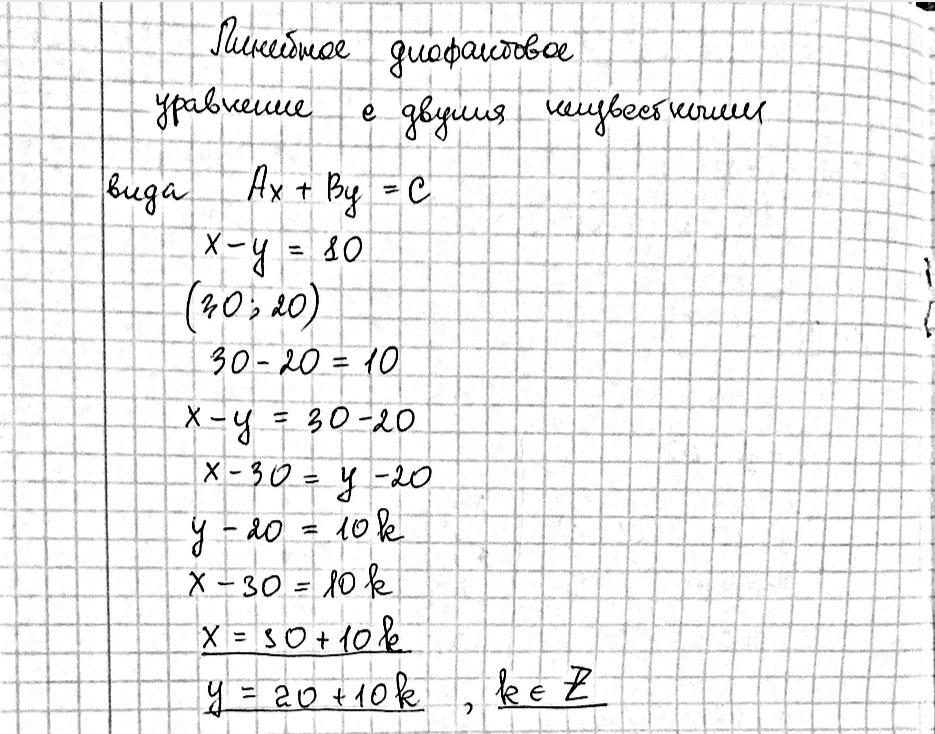 Линейное диофантовое
уравнение с двумя неизвестными
вида Ax + By = C
x - y = 10
(30; 20)
30 - 20 = 10
x - y = 30 - 20
x - 30 = y - 20
y - 20 = 10k
x - 30 = 10k
x = 30 + 10k
y = 20 + 10k , k ∈ Z